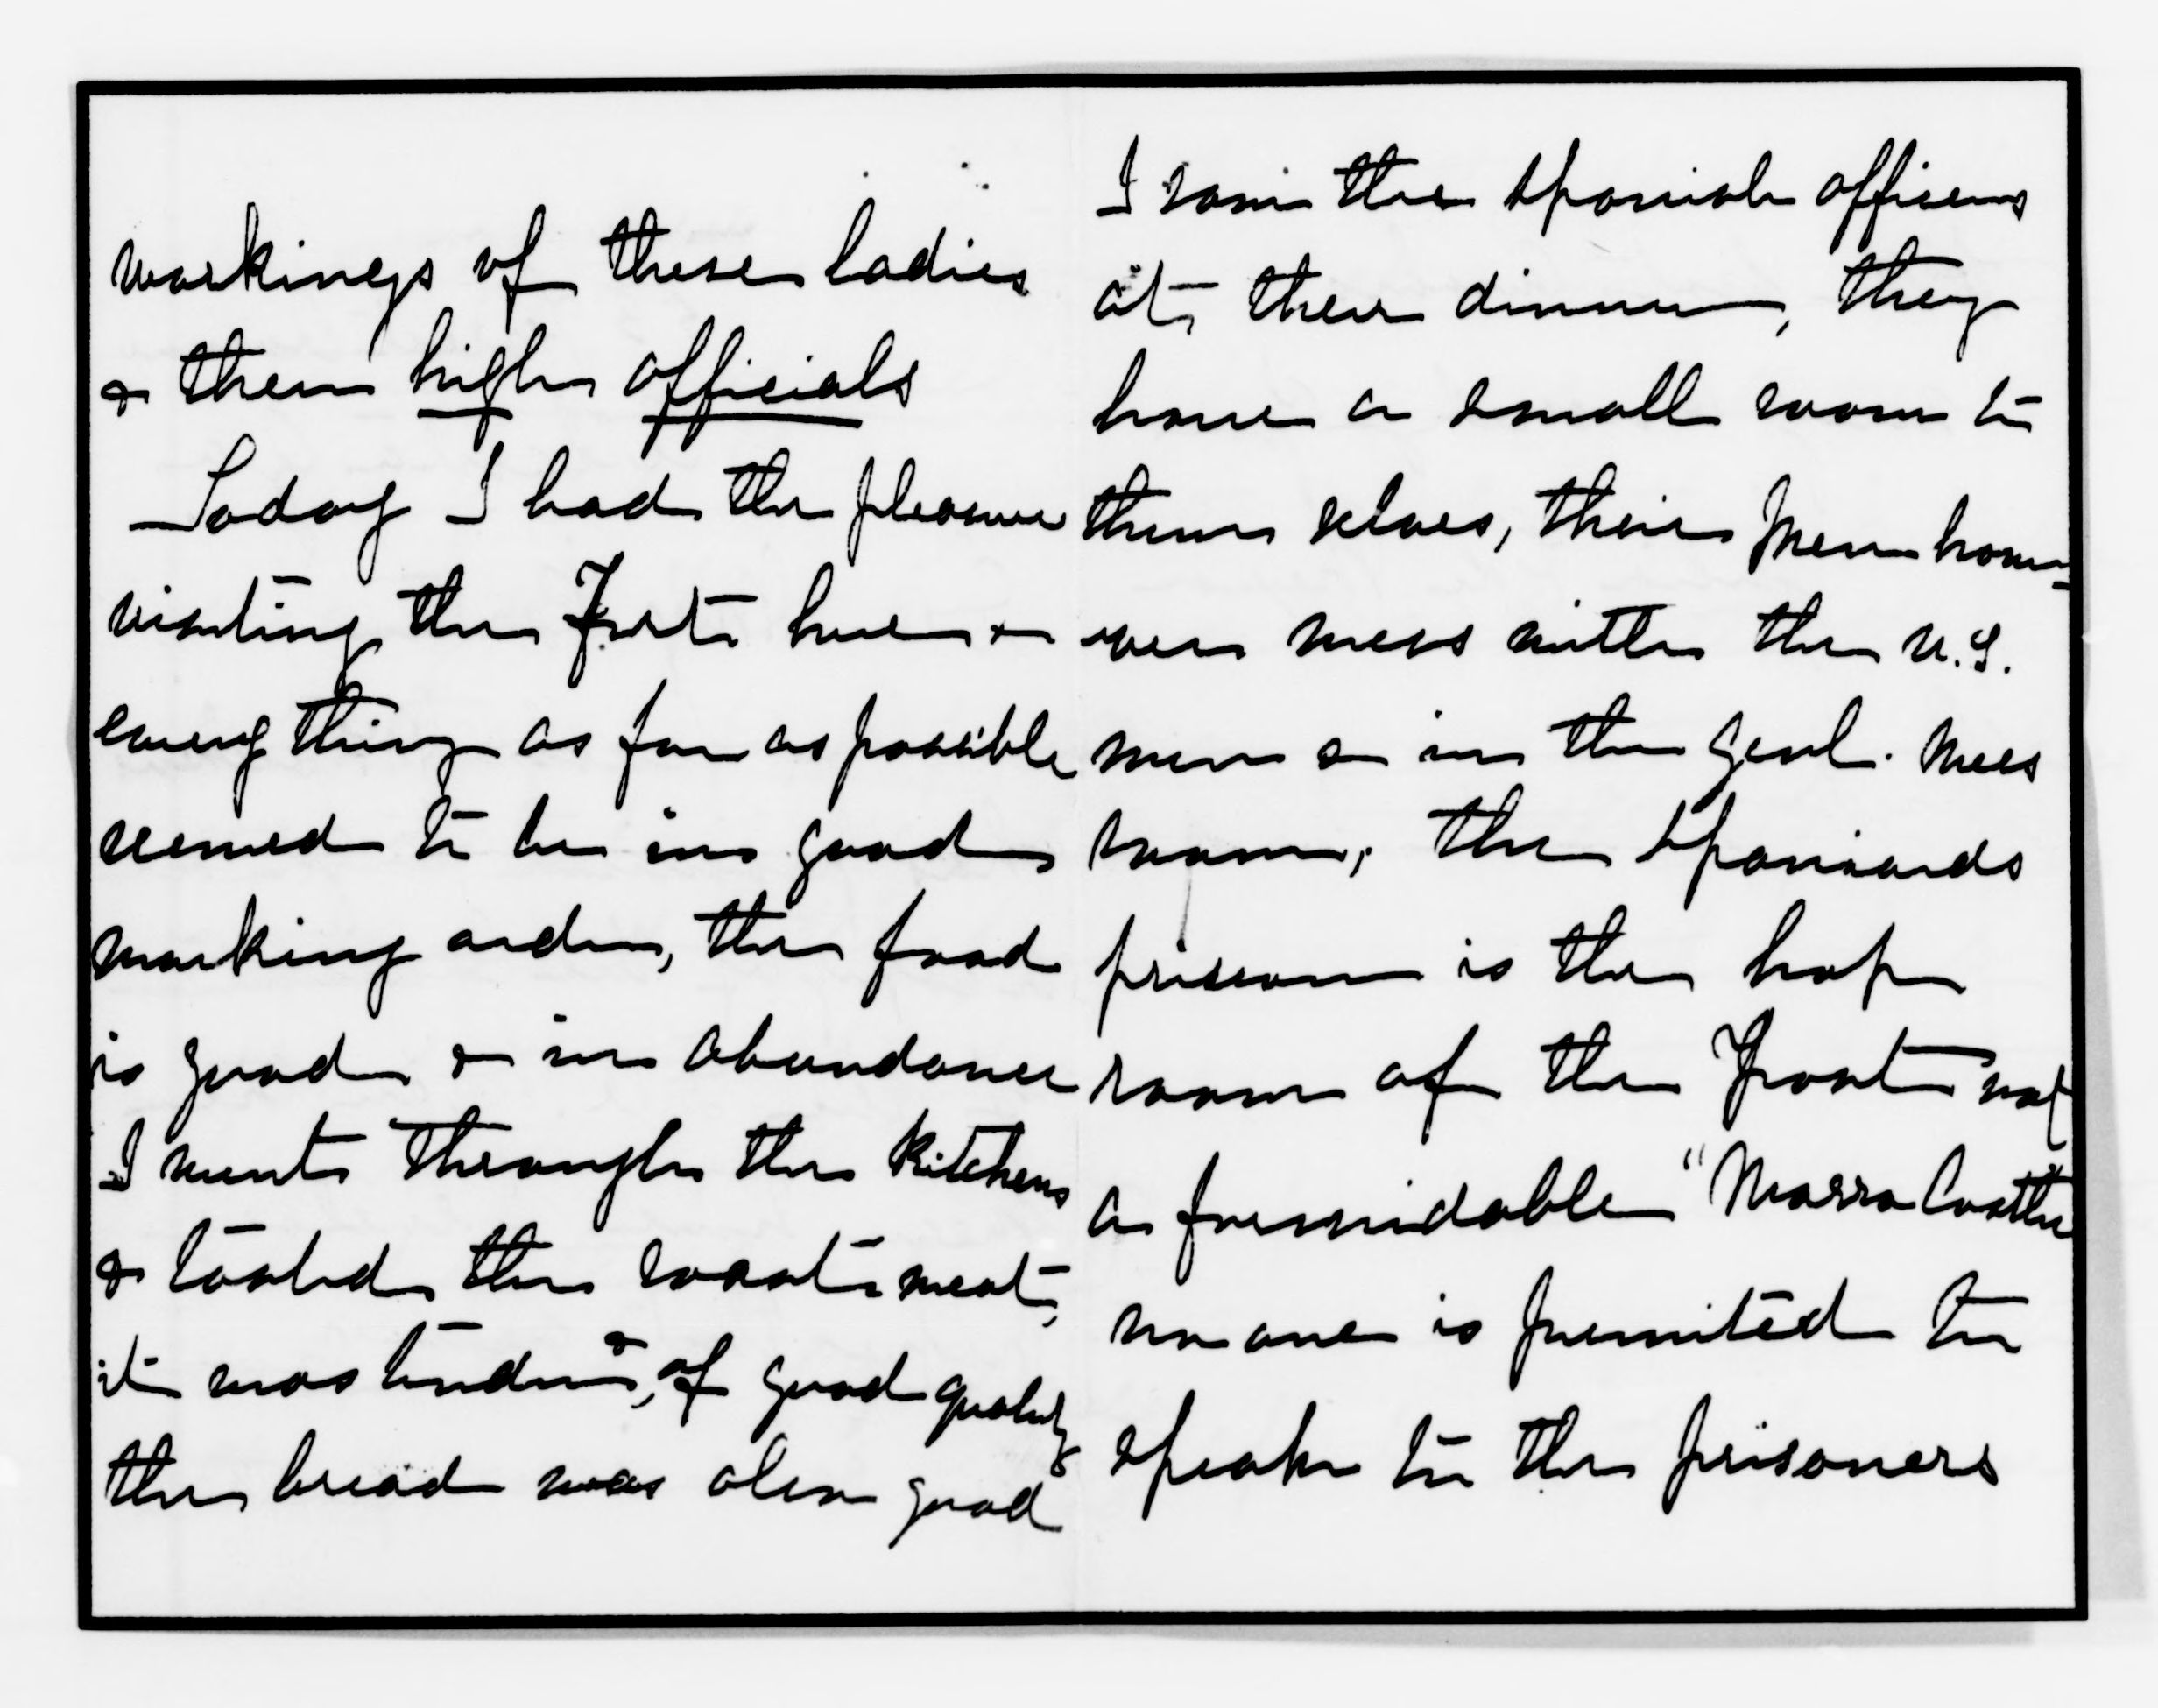 workings of these ladies
& their high officials
Today I had the pleasure
visiting the Fort here &
every thing as far as possible
seemed to be in good
working order, the food
is good & in abundance
I went through the kitchens
& tasted the roast meat,
it was tender & of good quality
the bread was also good
I saw the Spanish officers
at their dinner, they
have a small room to
them selves, their men how=
ever mess with the U.S.
men & in the genl. mess
room, the Spaniards
prison is the hop
room of the Front not
a formidable "Morro Castle"
no one is permited to
speak to the prisoners